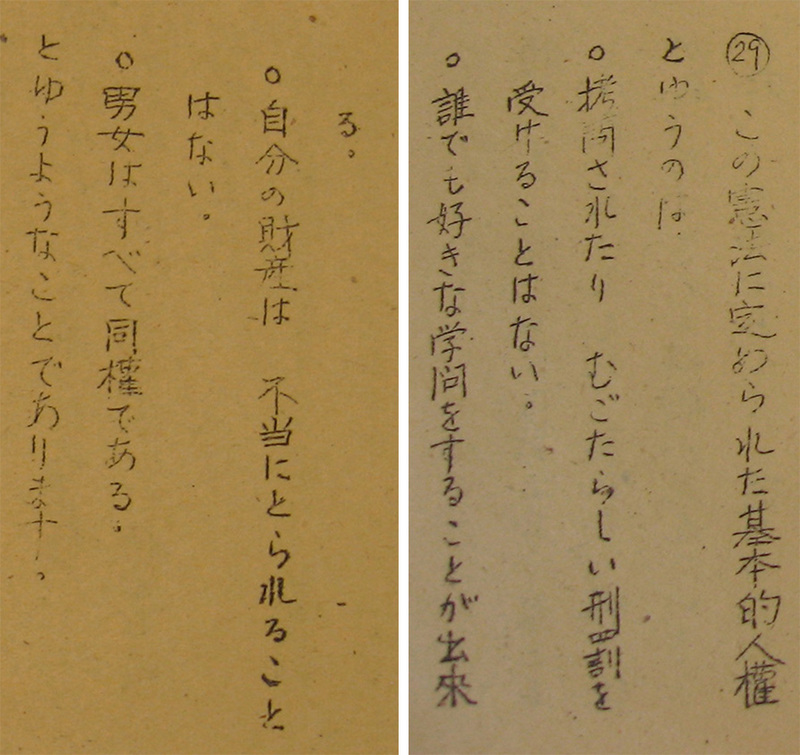 ㉙ この憲法に定められた基本的人權
とゆうのは
○拷問されたり むごたらしい刑罰を
受けることはない。
○誰でも好きな学問をすることが出來
る。
○自分の財産は 不当にとられること
はない。
○男女はすべて同權である。
とゆうようなことであります。